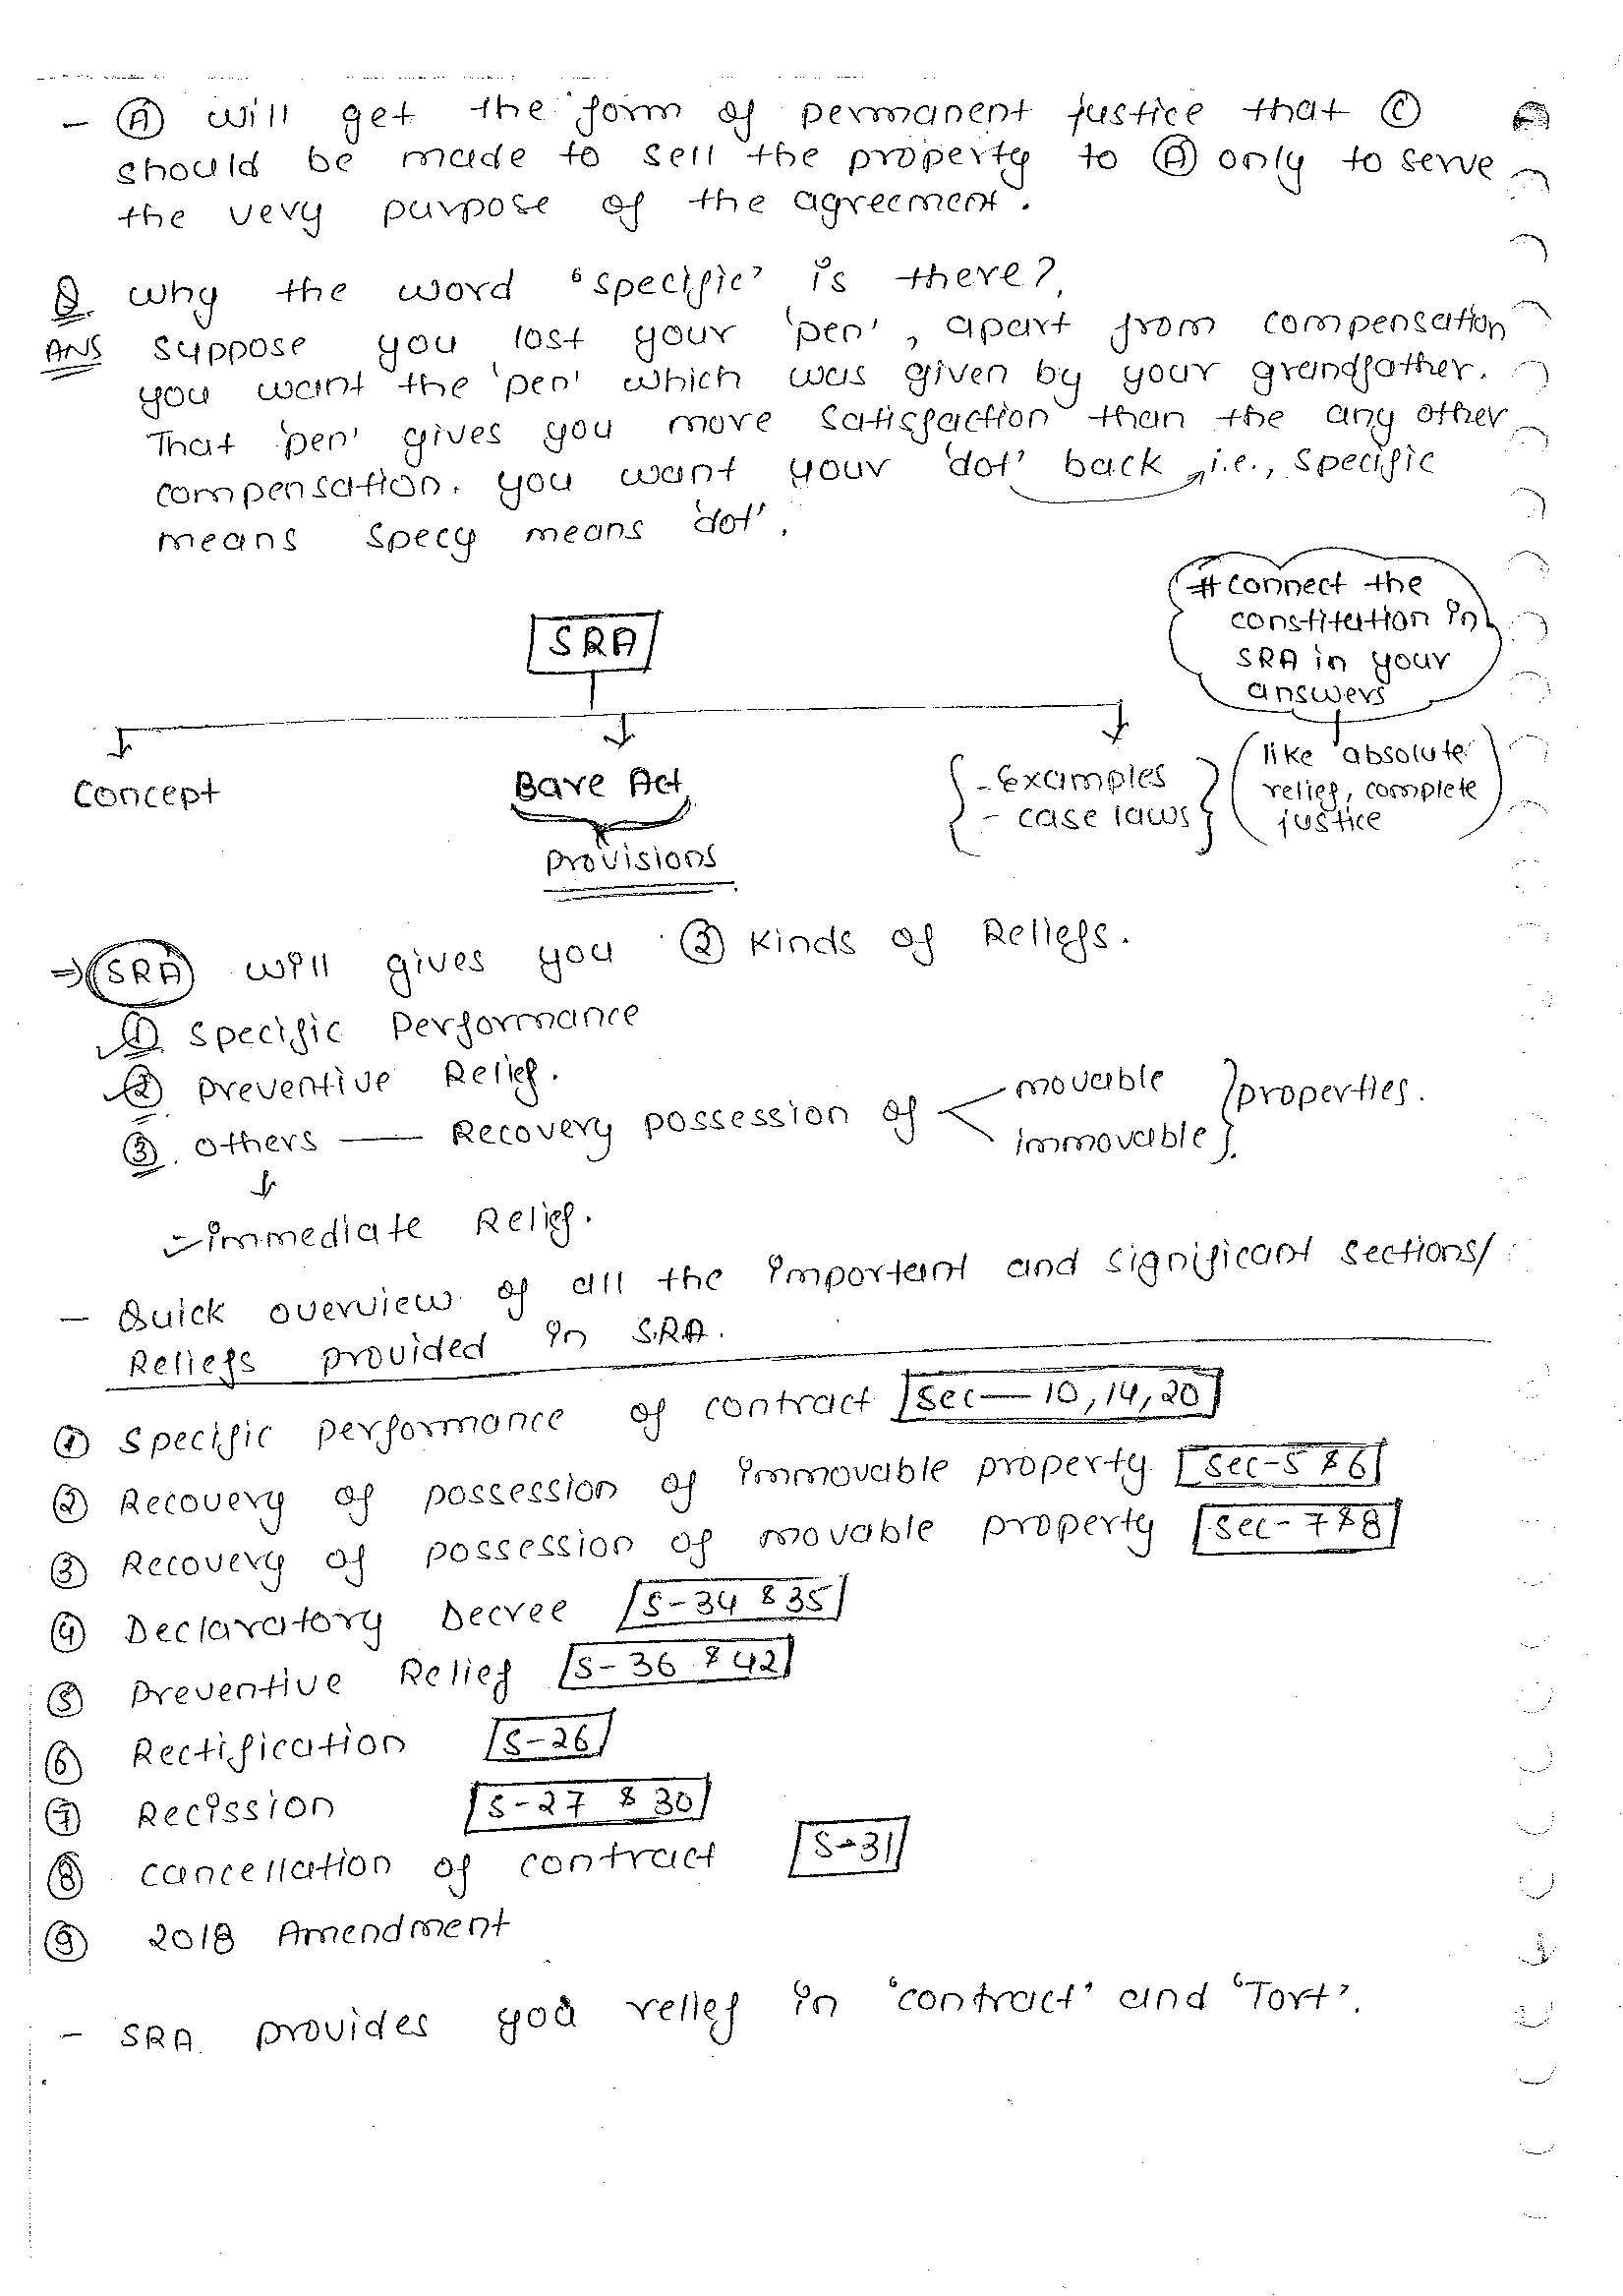 - Ⓐ will get the form of permanent justice that Ⓒ
should be made to sell the property to Ⓐ only to serve
the very purpose of the agreement.
Q. why the word 'specific' is there?
ANS suppose you lost your 'pen', apart from compensation
you want the 'pen' which was given by your grandfather.
That 'pen' gives you more satisfaction than the any other
compensation. you want your 'dot' back i.e., specific
means specy means 'dot'.
# connect the
constitution in
SRA in your
answers
SRA
Concept
Bare Act
Provisions
- Examples
- case laws
(like absolute
relief, complete
justice)
⇒ SRA will gives you ③ kinds of Reliefs.
① specific Performance
② preventive Relief.
③. others — Recovery possession of
movable
immovable
properties.
- immediate Relief.
- Quick overview of all the important and significant sections/
Reliefs provided in SRA.
① specific performance of contract [sec-10,14,20]
② Recovery of possession of immovable property [sec-5 & 6]
③ Recovery of possession of movable property [sec-7 & 8]
④ Declaratory Decree [S-34 & 35]
⑤ preventive Relief [S-36 & 42]
⑥ Rectification [S-26]
⑦ Recission [S-27 & 30]
⑧ cancellation of contract [S-31]
⑨ 2018 Amendment
- SRA provides you relief in 'contract' and 'Tort'.